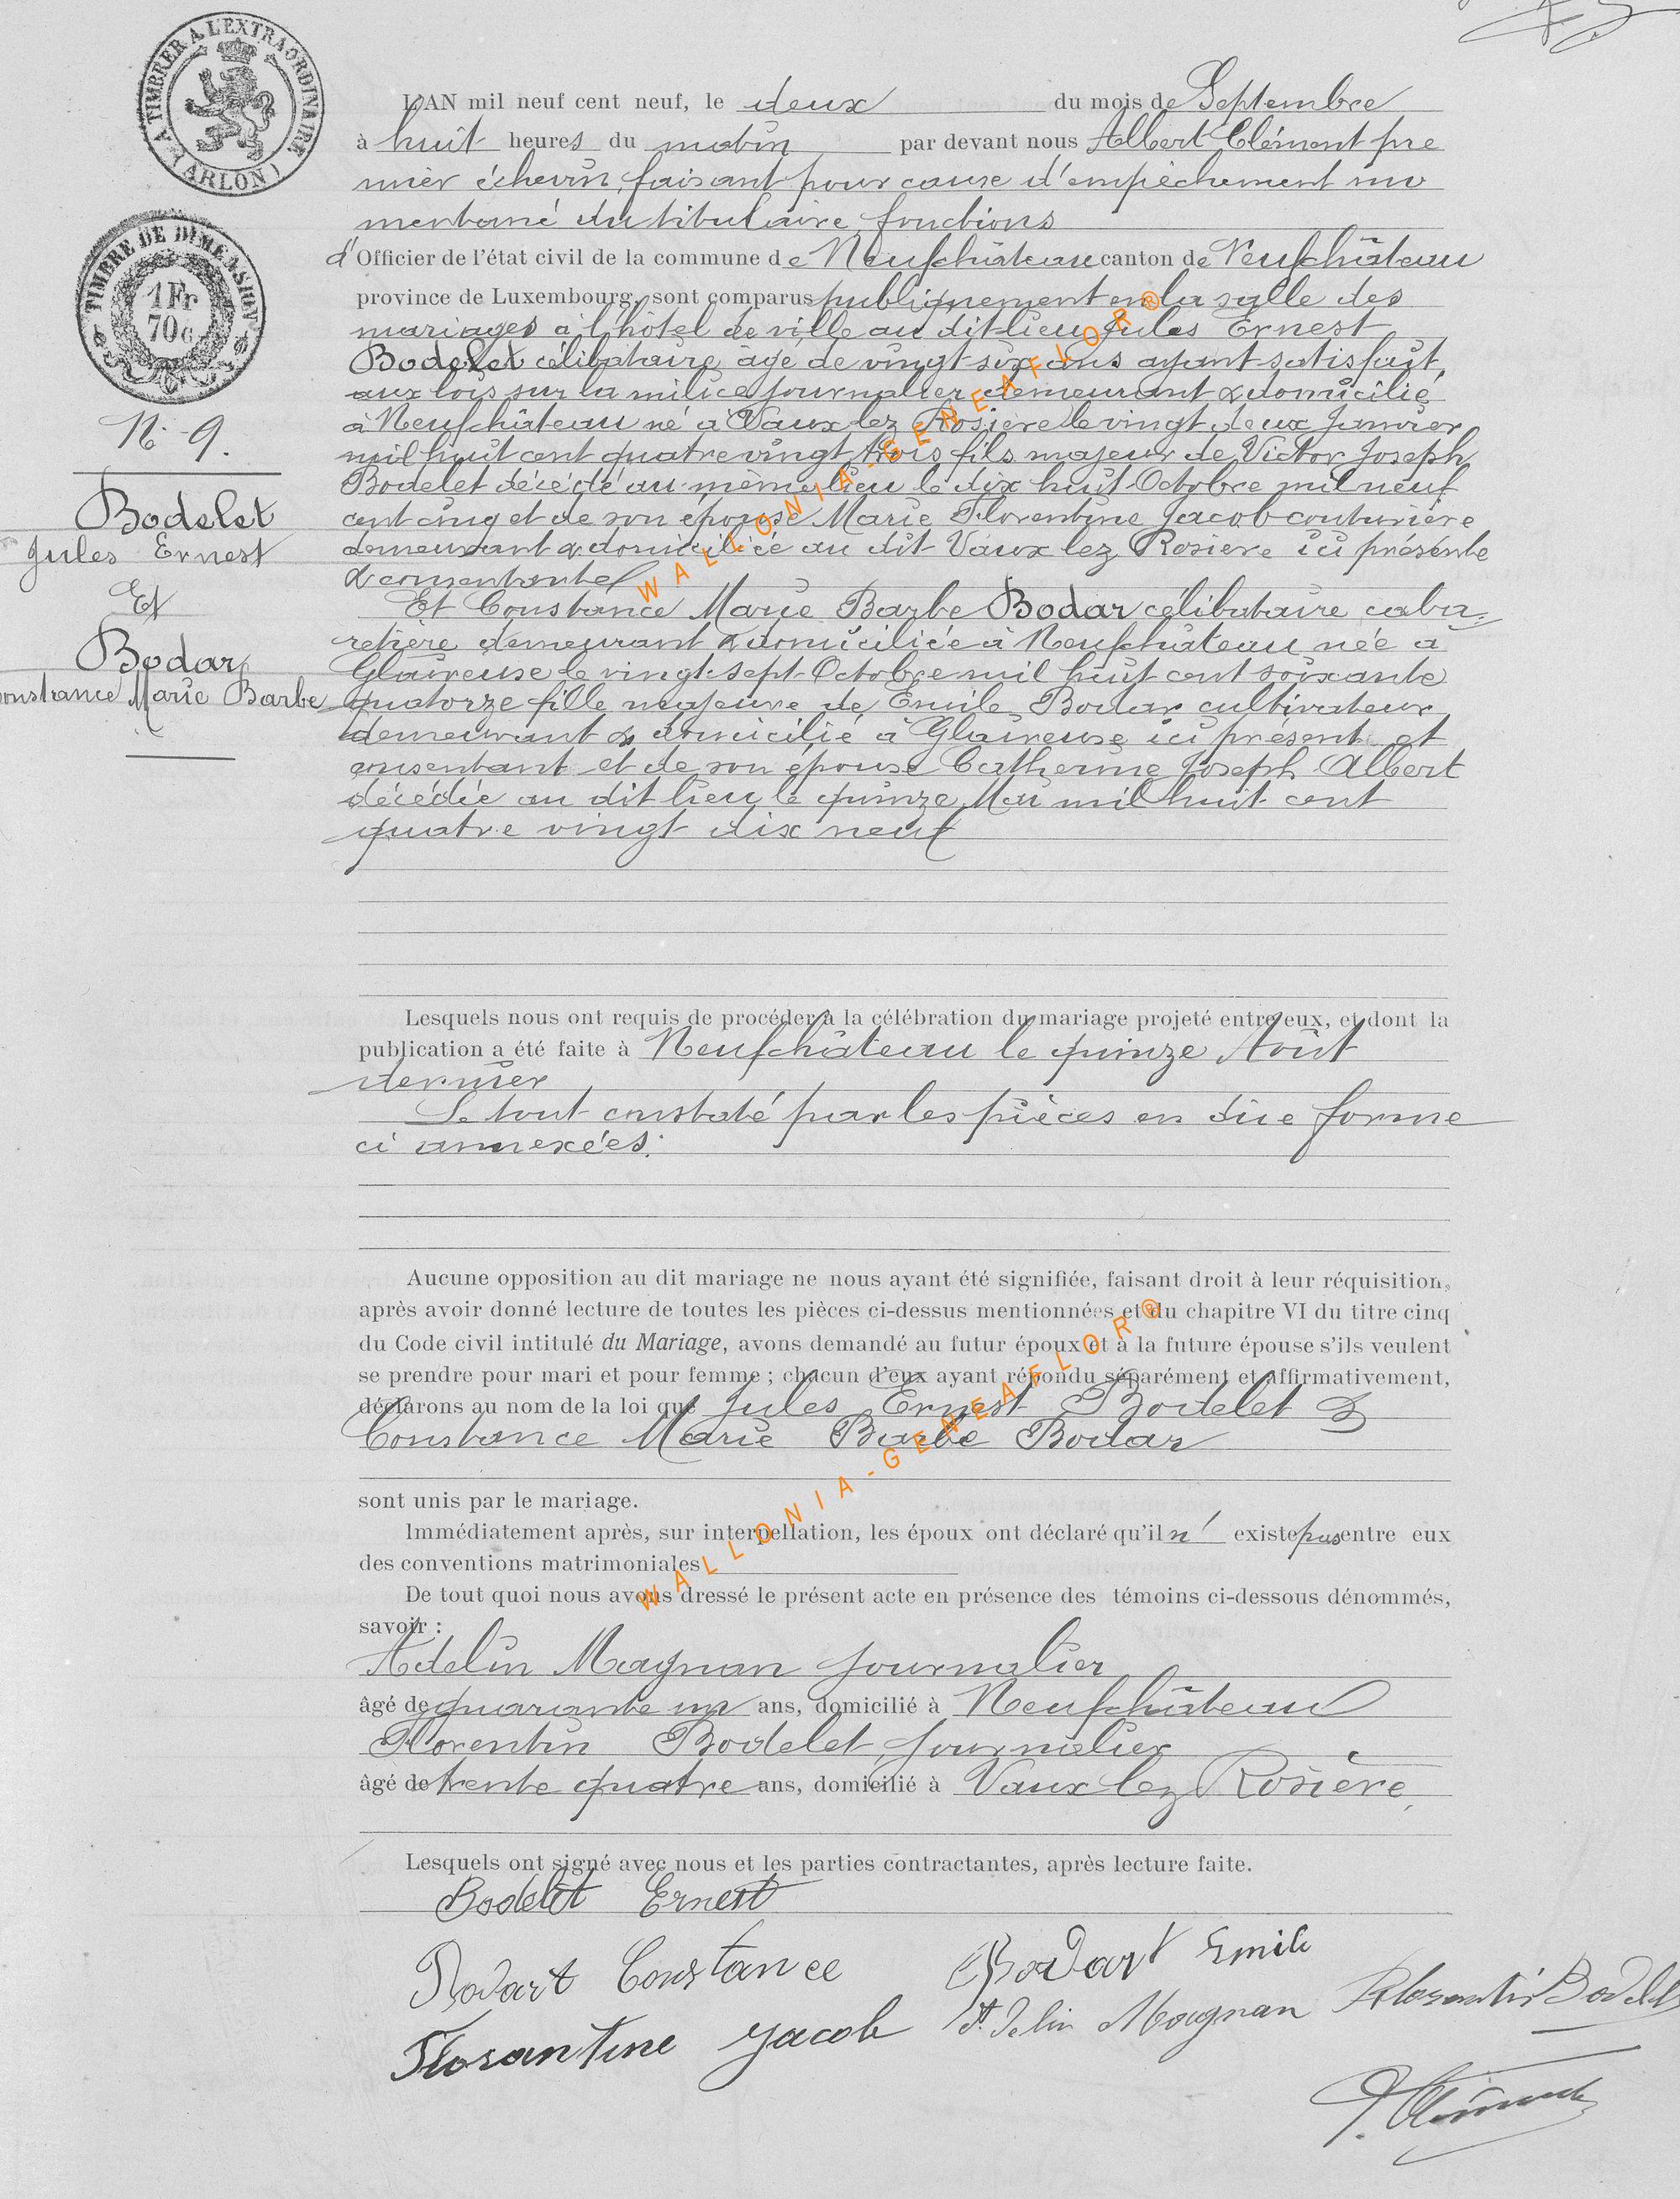 A TIMBRER A L'EXTRAORDINAIRE
(ARLON)
TIMBRE DE DIMENSION
1 Fr
70 c
N. 9.
Bodelet
Jules Ernest
Et
Bodar
Constance Marie Barbe
L'AN mil neuf cent neuf, le deux du mois de Septembre
à huit heures du matin par devant nous Albert Clément pre
mier échevin, faisant pour cause d'empêchement mo
mentané du titulaire, fonctions
d'Officier de l'état civil de la commune de Neufchâteau canton de Neufchâteau
province de Luxembourg, sont comparus publiquement en la salle des
mariages à l'hôtel de ville au dit lieu Jules Ernest
Bodelet célibataire, âgé de vingt six ans ayant satisfait
aux lois sur la milice journalier demeurant & domicilié
à Neufchâteau né à Vaux lez Rosière le vingt deux Janvier
mil huit cent quatre vingt trois fils majeur de Victor Joseph
Bodelet décédé au même lieu le dix huit Octobre mil neuf
cent cinq et de son épouse Marie Florentine Jacob couturière
demeurant & domiciliée au dit Vaux lez Rosiere ici présente
& consentante
Et Constance Marie Barbe Bodar célibataire caba
retière demeurant & domiciliée à Neufchâteau née à
Glaireuse le vingt-sept Octobre mil huit cent soixante
quatorze fille majeure de Emile Bodar cultivateur
demeurant & domicilié à Glaireuse ici présent et
consentant et de son épouse Catherine Joseph Albert
décédée au dit lieu le quinze Mai mil huit cent
quatre vingt dix neuf
Lesquels nous ont requis de procéder à la célébration du mariage projeté entre eux, et dont la
publication a été faite à Neufchâteau le quinze Août
dernier
Le tout constaté par les pièces en due forme
ci annexées.
Aucune opposition au dit mariage ne nous ayant été signifiée, faisant droit à leur réquisition,
après avoir donné lecture de toutes les pièces ci-dessus mentionnées et du chapitre VI du titre cinq
du Code civil intitulé du Mariage, avons demandé au futur époux et à la future épouse s'ils veulent
se prendre pour mari et pour femme ; chacun d'eux ayant répondu séparément et affirmativement,
déclarons au nom de la loi que Jules Ernest Bodelet &
Constance Marie Barbe Bodar
sont unis par le mariage.
Immédiatement après, sur interpellation, les époux ont déclaré qu'il n' existe pas entre eux
des conventions matrimoniales
De tout quoi nous avons dressé le présent acte en présence des témoins ci-dessous dénommés,
savoir :
Adelin Magnan journalier
âgé de quarante un ans, domicilié à Neufchâteau
Florentin Bodelet journalier
âgé de trente quatre ans, domicilié à Vaux lez Rosière
Lesquels ont signé avec nous et les parties contractantes, après lecture faite.
Bodelet Ernest
Bodart Constance Bodart Emile
Florantine Jacob Adelin Magnan Florentin Bodelet
Clément
WALLONIA-GENEAFLOR®
WALLONIA-GENEAFLOR®